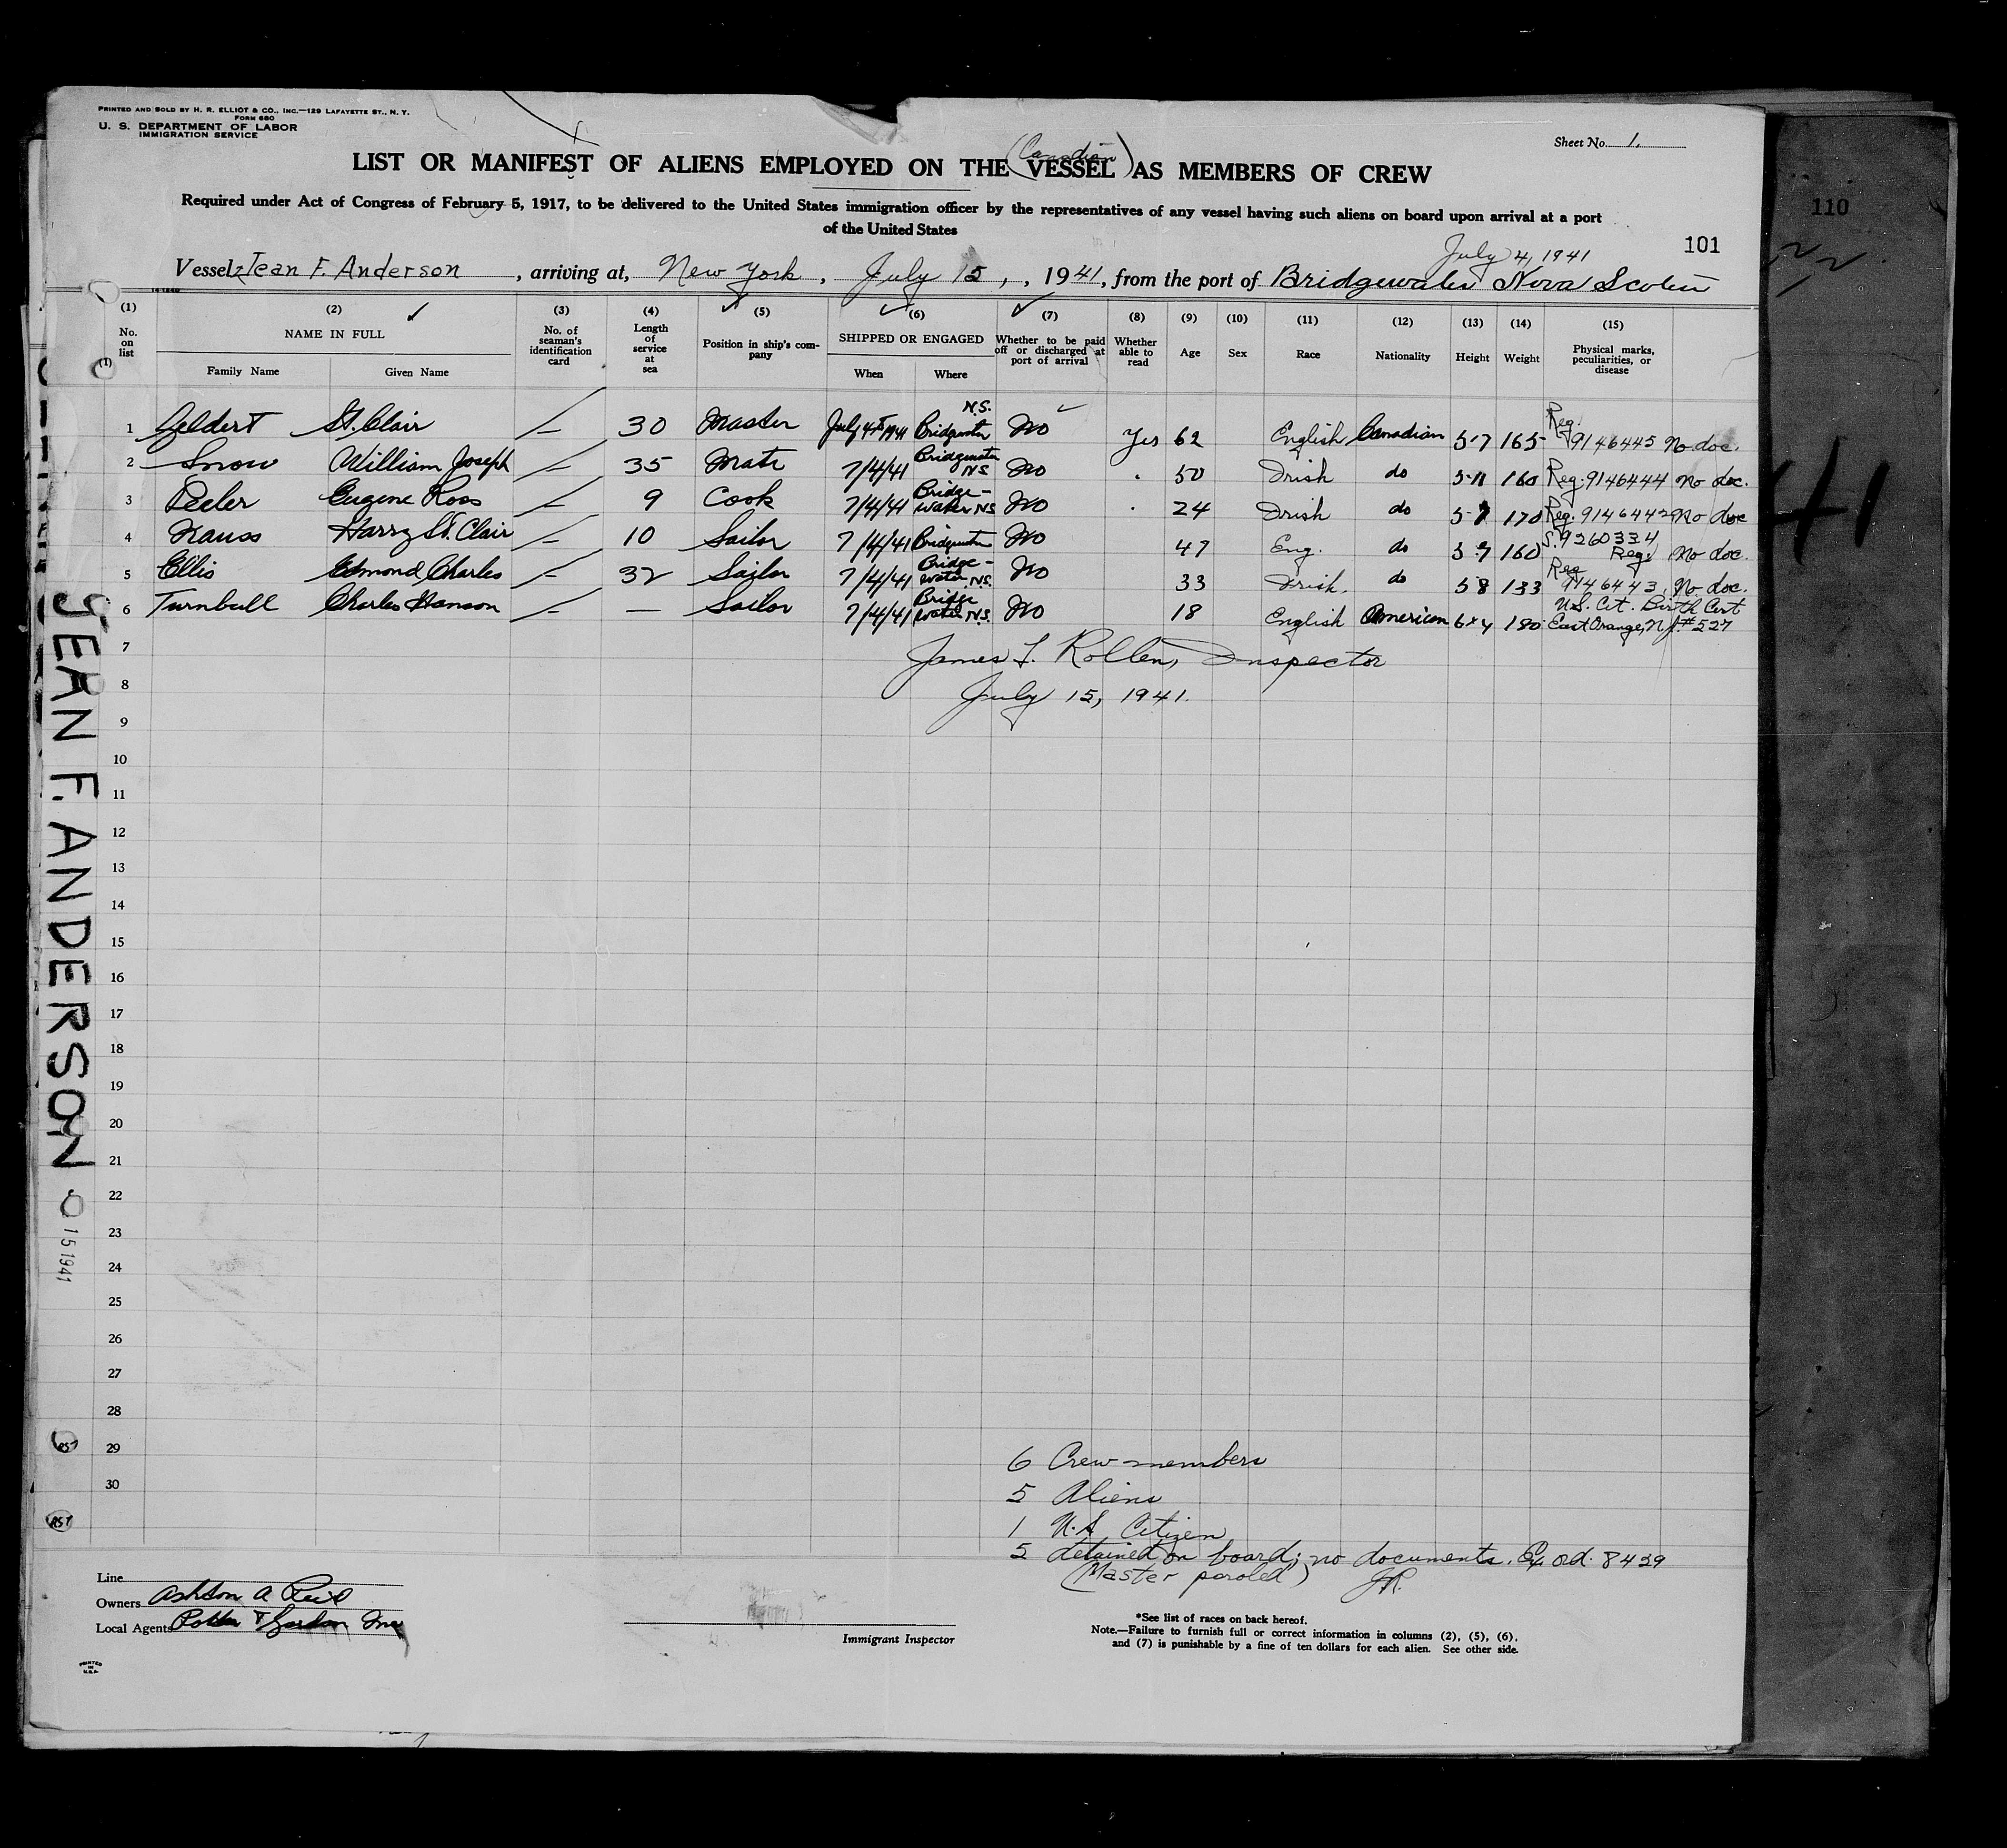 PRINTED AND SOLD BY H. R. ELLIOT & CO., INC.—129 LAFAYETTE ST., N. Y.
FORM 680
U. S. DEPARTMENT OF LABOR
IMMIGRATION SERVICE
Sheet No. 1.
(Canadian)
LIST OR MANIFEST OF ALIENS EMPLOYED ON THE VESSEL AS MEMBERS OF CREW
Required under Act of Congress of February 5, 1917, to be delivered to the United States immigration officer by the representatives of any vessel having such aliens on board upon arrival at a port
of the United States
101
110
July 4, 1941
Vessel Jean F. Anderson, arriving at, New York, July 15, 1941, from the port of Bridgewater Nova Scotia
(1) (2) (3) (4) (5) (6) (7) (8) (9) (10) (11) (12) (13) (14) (15)
No. on list
NAME IN FULL
Family Name Given Name
No. of seaman's identification card
Length of service at sea
Position in ship's company
SHIPPED OR ENGAGED
When Where
Whether to be paid off or discharged at port of arrival
Whether able to read
Age
Sex
Race
Nationality
Height
Weight
Physical marks, peculiarities, or disease
1 Geldert St. Clair — 30 Master July 4th 1941 Bridgewater N.S. No Yes 62 English Canadian 5-7 165 Reg. 9146445 No doc.
2 Snow William Joseph — 35 Mate 7/4/41 Bridgewater N.S. No 50 Irish do 5-11 160 Reg. 9146444 No doc.
3 Peeler Eugene Ross — 9 Cook 7/4/41 Bridge-water N.S. No 24 Irish do 5-7 170 Reg. 9146442 No doc
4 Nauss Harry St. Clair — 10 Sailor 7/4/41 Bridgewater No 47 Eng. do 5-7 160 S. 9260334 Reg. No doc.
5 Ellis Edmond Charles — 32 Sailor 7/4/41 Bridge-water N.S. No 33 Irish. do 5 8 133 Reg 9146443, No doc.
6 Turnbull Charles Hanson — — Sailor 7/4/41 Bridge water N.S. No 18 English American 6x4 180 U.S. Cit. Birth Cert East Orange, N.J. #527
7
James F. Rollen, Inspector
8
July 15, 1941.
9
10
11
12
13
14
15
16
17
18
19
20
21
22
23
24
25
26
27
28
29
30
JEAN F. ANDERSON
15 1941
6 Crew members
5 Aliens
1 U.S. Citizen
5 detained on board; no documents. Ex. Od. 8429
(Master paroled) JR.
Line
Owners Ashton A
Local Agents Potter & Gordon Inc
Immigrant Inspector
*See list of races on back hereof.
Note.—Failure to furnish full or correct information in columns (2), (5), (6),
and (7) is punishable by a fine of ten dollars for each alien. See other side.
PRINTED IN U.S.A.